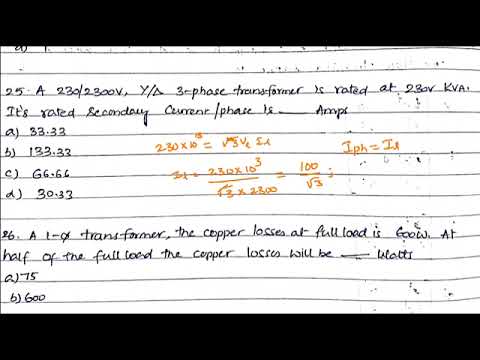 25. A 230/2300V, Y/Δ 3-phase transformer is rated at 230V KVA.
It's rated Secondary Current/phase is ___ Amps
a) 33.33
b) 133.33
c) 66.66
d) 30.33
230×10³ = √3 VL IL
IL = 230×10³ / √3 × 2300 = 100 / √3 ;
Iph = IL
26. A 1-Ø transformer, the copper losses at full load is 600W. At
half of the full load the copper losses will be ___ Watts
a) 75
b) 600